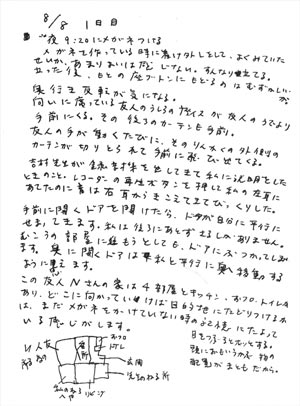 8/8 1日目
夜9:20にメガネつける
メガネを作っている時に着け外しをして、よくみていた
せいか、あまりまいはだじない。すんなり立てる。
立った後、もとの座ブトンにもどるのはむずかしい
が
奥行き反転が気になる。
向いに座っている友人のうしろのイスが友人のうでより
手前にくる。その後ろのカーテンも手前。
友人の手が動くたびに、そのりんかくの外側の
カーテンが切りとられて手前に飛び出てくる。
吉村先生が録音機を出してきて私に説明をした
ときのこと。レコーダーの再生ボタンを押して私の左耳に
あてたのに音は右耳からきこえてきてびっくりした。
手前に開くドアを開けたら、ドアが自分に平行に
せまってきます。私は後ろにあとずさるしかありません。
むこうの部屋に進もうとしても、ドアにぶつかってしまい
ます。奥に開くドアは私と平行に奥へ移動する
ように見えます。
この友人Nさんの家は4部屋とキッチン、おフロ、トイレが
あり、どこに向かっていけば目的地にたどりつけるか
は、まだメガネをかけていない時の記憶にたよって
いる感じがします。
目をつぶるとホッとする。
頭におもいうかぶ物の
配置がまともだから。
友人
台所
おフロ
トイレ
玄関
私のねる
へや
リビング
先生のねる所